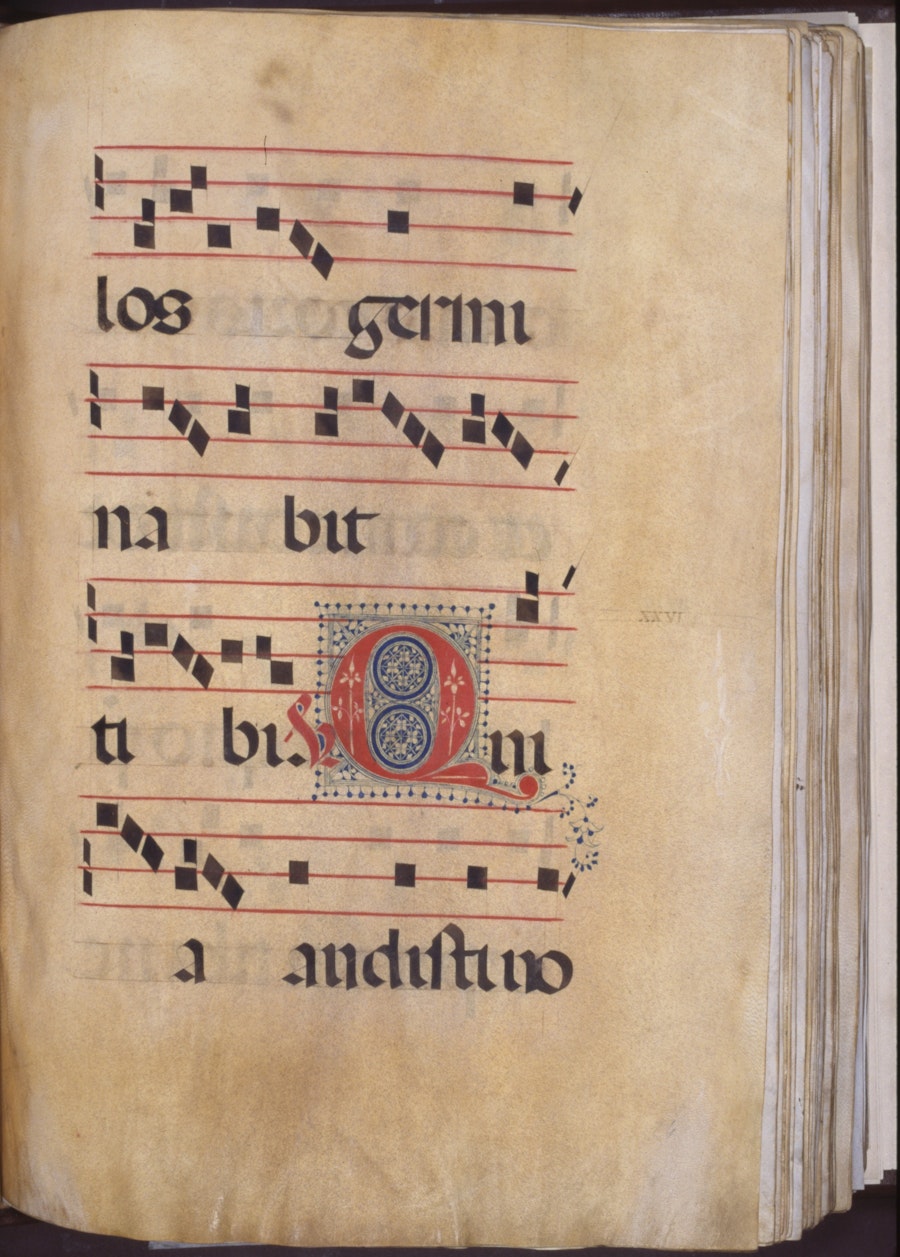 los germi
na bit
ti bi. Qui
a audisti uo
XXVI